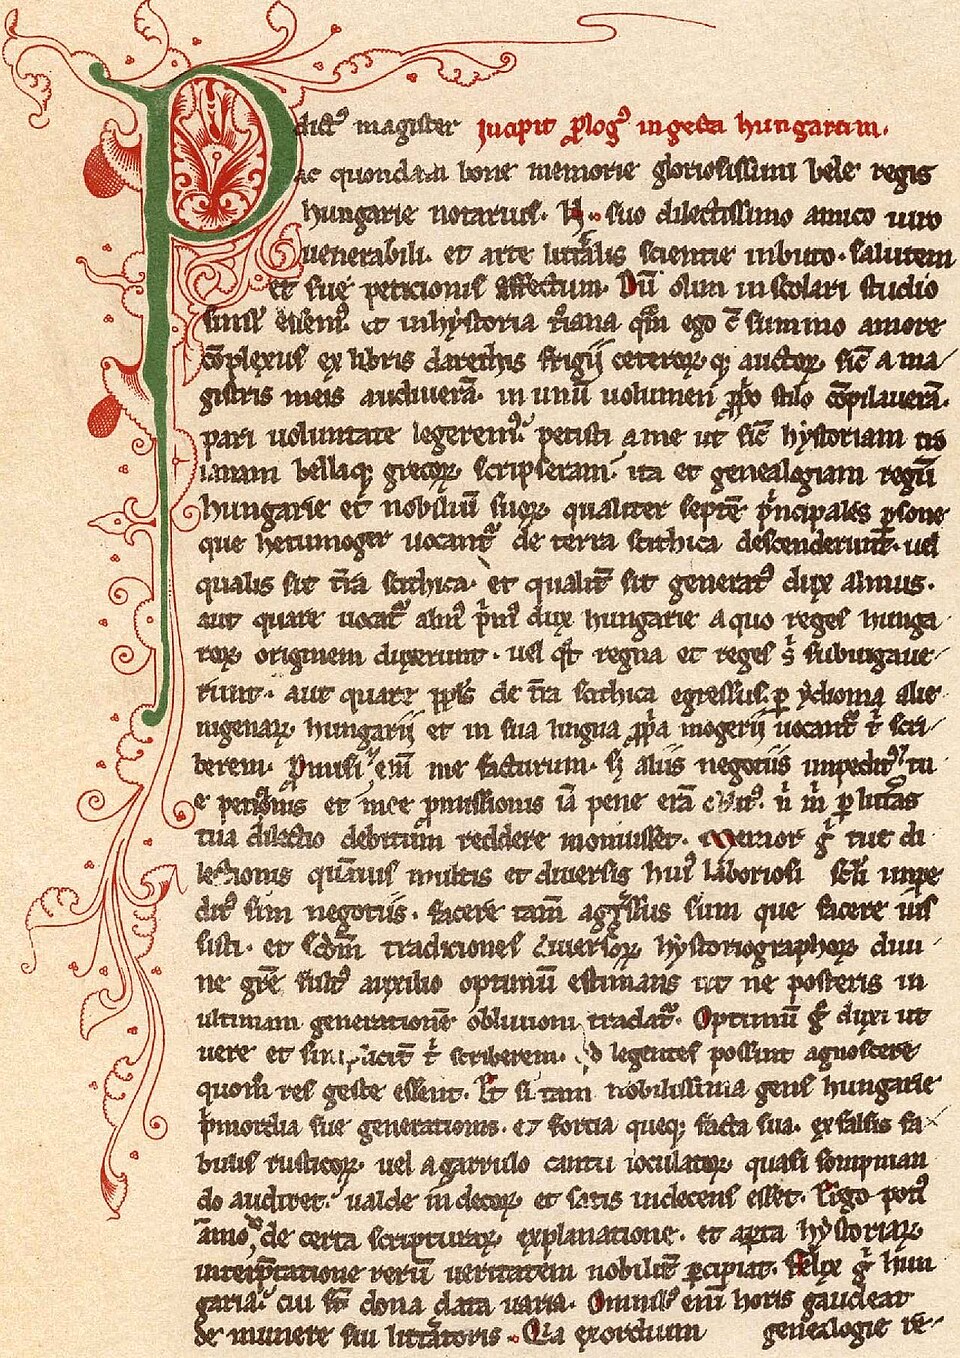 P dict9 magister Incipit plog9 in gesta hungarum.
ac quondam bone memorie gloriosissimi bele regis
hungarie notarius. N. suo dilectissimo amico uiro
uenerabili. et arte litt̄alis scientie inbuto. salutem
et sue peticionis affectum. Dū olim in scolari studio
simul essem9. et in hystoria t̊iana q̄m ego c̄ summo amore
cōplexus ex libris darethis frigii ceteroꝝ qꝫ auctoꝝ. sic̄ a ma
gistris meis audiuerā. in unū uolumen ꝓpo stilo cōpilauerā.
pari uoluntate legerem9. petisti a me ut sic̄ hystoriam tro
ianam bellaqꝫ grecoꝝ scripseram. ita et genealogiam regū
hungarie et nobiliū suoꝝ. qualiter septē p̄ncipales ꝑsone
que hetumoger uocant᷑ de terra scithica descenderunt. uel
qualis sit t̄ra scithica. et qualit̄ sit generat9 dux almus.
aut quare uocat᷑ alm9 p̄m9 dux hungarie a quo reges hunga
roꝝ originem duxerunt. uel qt̄ regna et reges s̄ subiugaue
runt. aut quare ppl̄s de t̄ra scithica egressus. ꝑ ydioma alie
nigenaꝝ hungarii et in sua lingua ꝓp̄a mogerii uocant᷑ t̄ scri
berem. Promisi eni᷑ me facturum. sꝫ aliis negotiis impedit9. tu
e petic̄onis et mee pmissionis iā pene erā oblit9. n̄ m̄ ꝑ litt̄as
tua dilectio debitum reddere monuisset. Memor g̊ tue di
lectionis quāuis multis et diuersis hui9 laboriosi sc̄li impe
dit9 sim negotiis. facere tam̄ aggressus sum que facere ius
sisti. et sc̄d̄m traditiones diuersoꝝ hystoriographoꝝ diui
ne gr̄e fult9 auxilio optimū estimans ut ne posteris in
ultimam generationē obliuioni tradat᷑. Optimū g̊ duxi ut
uere et simplicit̄ t̄ scriberem. qd legentes possint agnoscere
quom̊ res geste essent. Et si tam nobilissima gens hungarie
p̄mordia sue generationis. et fortia queqꝫ facta sua. ex falsis fa
bulis rusticoꝝ. uel a garrulo cantu ioculatoꝝ quasi sompnian
do audiret. ualde indecoꝝ et satis indecens esset. Ergo poti9
āmo de certa scripturaꝝ explanatione. et apta hystoriaꝝ
interp̄tatione rerū ueritatem nobilit̄ ꝑcipiat. Felix g̊ hun
garia. cui sūt dona data uaria. Omnib9 eni᷑ horis gaudeat
de munere sui litt̄atoris. Quia exordium genealogie re